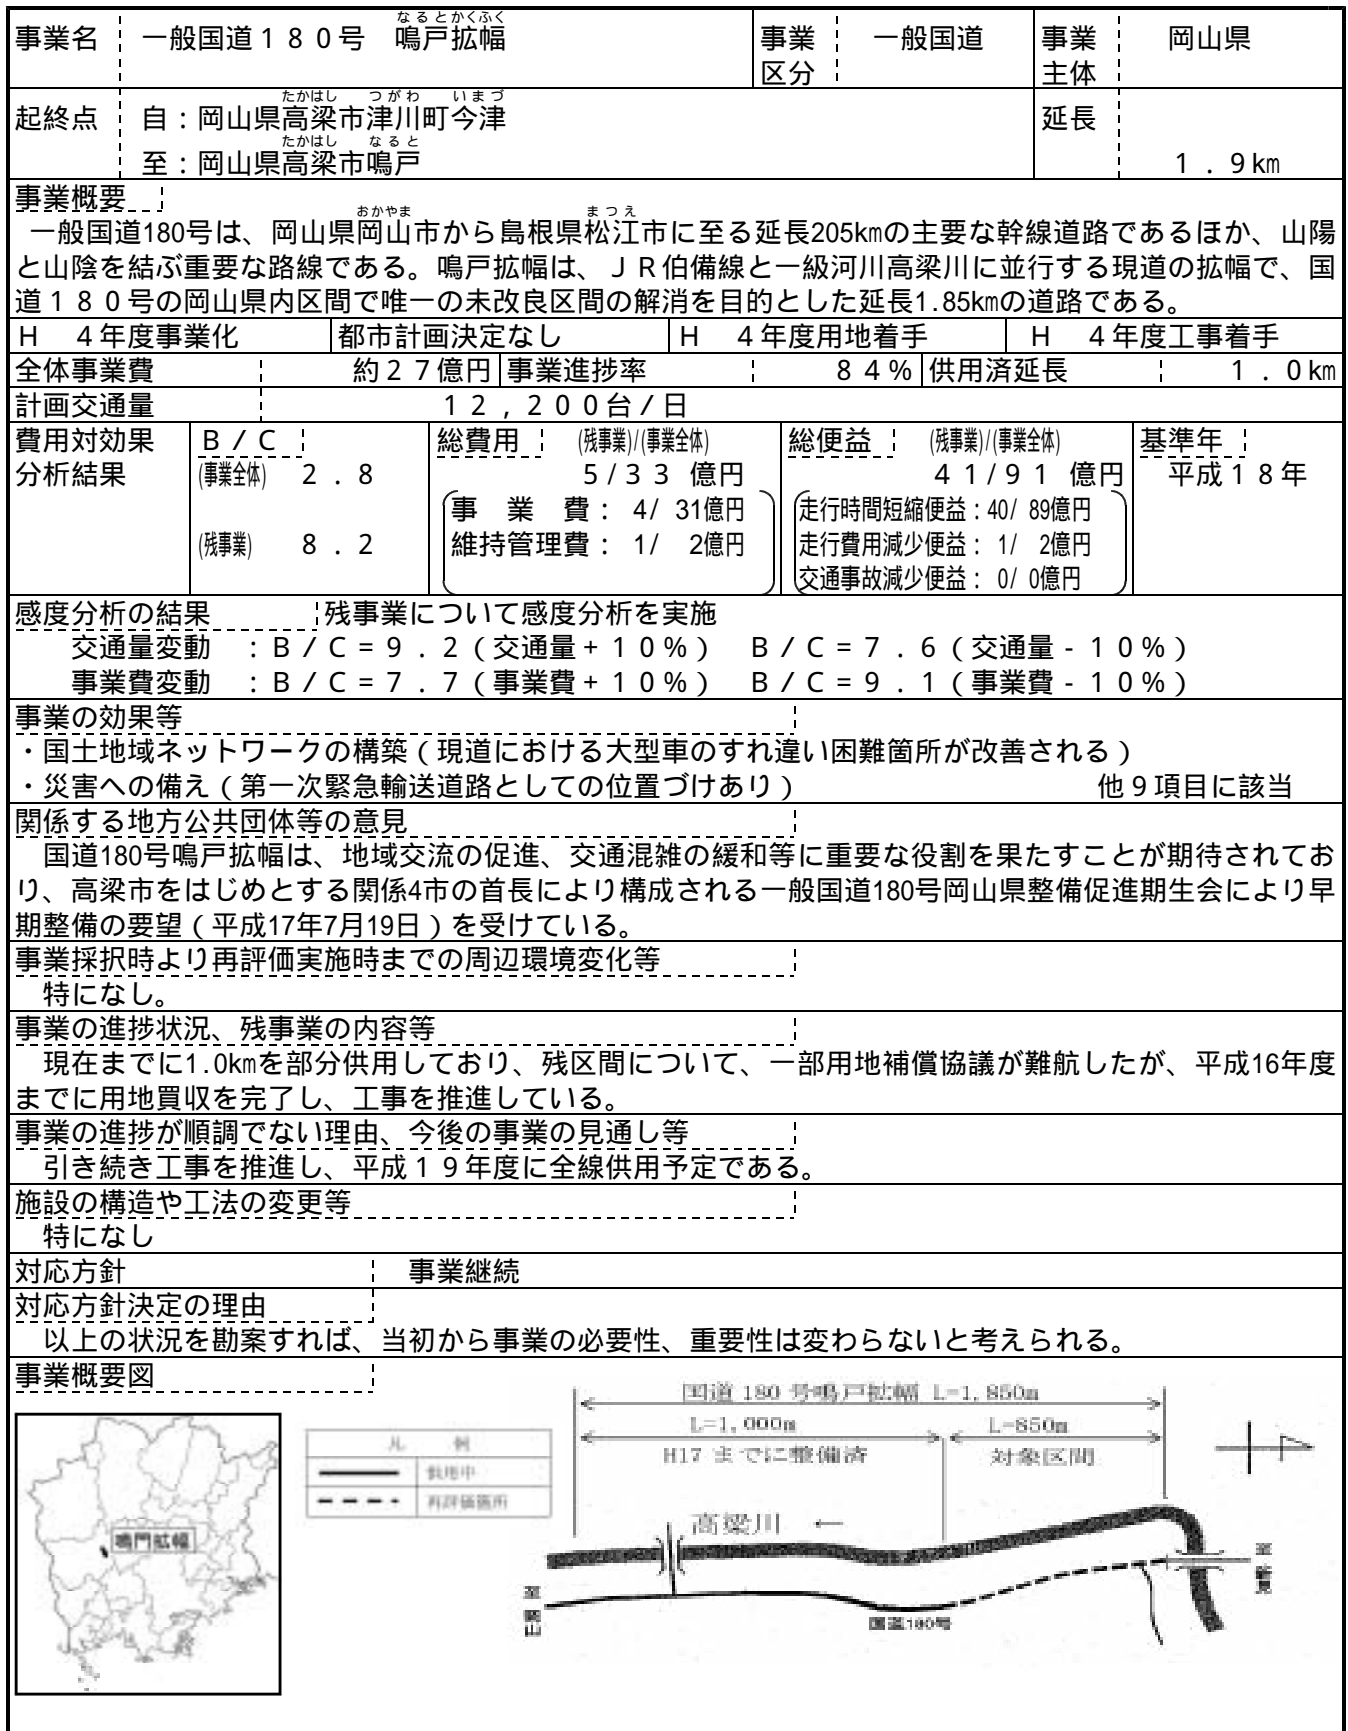 なるとかくふく
事業名 一般国道１８０号 鳴戸拡幅 事業 一般国道 事業 岡山県
区分 主体
たかはし つがわ いまづ
起終点 自：岡山県高梁市津川町今津 延長
たかはし なると
至：岡山県高梁市鳴戸 １．９km
事業概要
おかやま まつえ
一般国道180号は、岡山県岡山市から島根県松江市に至る延長205kmの主要な幹線道路であるほか、山陽
と山陰を結ぶ重要な路線である。鳴戸拡幅は、ＪＲ伯備線と一級河川高梁川に並行する現道の拡幅で、国
道１８０号の岡山県内区間で唯一の未改良区間の解消を目的とした延長1.85kmの道路である。
Ｈ ４年度事業化 都市計画決定なし Ｈ ４年度用地着手 Ｈ ４年度工事着手
全体事業費 約２７億円 事業進捗率 ８４％ 供用済延長 １．０km
計画交通量 １２，２００台／日
費用対効果 Ｂ／Ｃ 総費用 (残事業)/(事業全体) 総便益 (残事業)/(事業全体) 基準年
分析結果 (事業全体) ２．８ ５/３３ 億円 ４１/９１ 億円 平成１８年
事 業 費： 4/ 31億円 走行時間短縮便益：40/ 89億円
(残事業) ８．２ 維持管理費： 1/ 2億円 走行費用減少便益： 1/ 2億円
交通事故減少便益： 0/ 0億円
感度分析の結果 残事業について感度分析を実施
交通量変動 ：Ｂ／Ｃ＝９．２（交通量＋１０％） Ｂ／Ｃ＝７．６（交通量－１０％）
事業費変動 ：Ｂ／Ｃ＝７．７（事業費＋１０％） Ｂ／Ｃ＝９．１（事業費－１０％）
事業の効果等
・国土地域ネットワークの構築（現道における大型車のすれ違い困難箇所が改善される）
・災害への備え（第一次緊急輸送道路としての位置づけあり） 他９項目に該当
関係する地方公共団体等の意見
国道180号鳴戸拡幅は、地域交流の促進、交通混雑の緩和等に重要な役割を果たすことが期待されてお
り、高梁市をはじめとする関係4市の首長により構成される一般国道180号岡山県整備促進期生会により早
期整備の要望（平成17年7月19日）を受けている。
事業採択時より再評価実施時までの周辺環境変化等
特になし。
事業の進捗状況、残事業の内容等
現在までに1.0kmを部分供用しており、残区間について、一部用地補償協議が難航したが、平成16年度
までに用地買収を完了し、工事を推進している。
事業の進捗が順調でない理由、今後の事業の見通し等
引き続き工事を推進し、平成１９年度に全線供用予定である。
施設の構造や工法の変更等
特になし
対応方針 事業継続
対応方針決定の理由
以上の状況を勘案すれば、当初から事業の必要性、重要性は変わらないと考えられる。
事業概要図
国道 180 号鳴戸拡幅 L=1,850m
L=1,000m L=850m
H17 までに整備済 対象区間
凡 例
供用中
再評価箇所
高梁川 ←
鳴門拡幅
国道180号